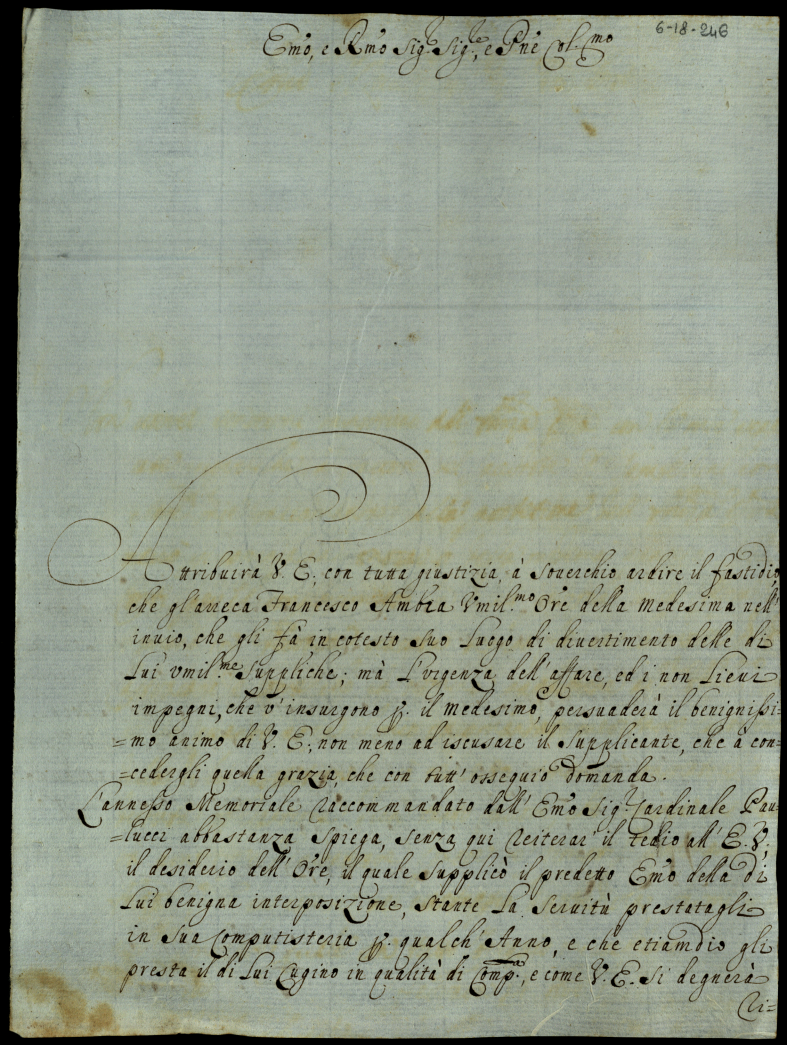 6-18-246
Emo, e Rmo Sig.r Sig.re, e Pne Col.mo
Attribuirà V. E., con tutta giustizia, à souerchio ardire il fastidio,
che gl'arreca Francesco Ambra Vmil.mo Ore della medesima nell'
inuio, che gli fà in cotesto Suo Luogo di diuertimento delle di
Lui vmil.me Suppliche; mà L'vrgenza dell'affare, ed i non Lieui
impegni, che v'insurgono p. il medesimo, persuaderà il benignissi-
=mo animo di V. E., non meno ad iscusare il Supplicante, che à con-
=cedergli quella grazia, che con tutt'ossequio domanda.
L'annesso Memoriale raccommandato dall'Emo Sig.r Cardinale Pau-
=lucci abbastanza Spiega, senza qui reiterar il tedio all'E. V.,
il desiderio dell'Ore, il quale Supplicò il predetto Emo della di
Lui benigna interposizione, stante La Seruitù prestatagli
in Sua Computisteria p. qualch'Anno, e che etiamdio gli
presta il di Lui Cugino in qualità di Comp.a, e come V. E. Si degnerà
ri=